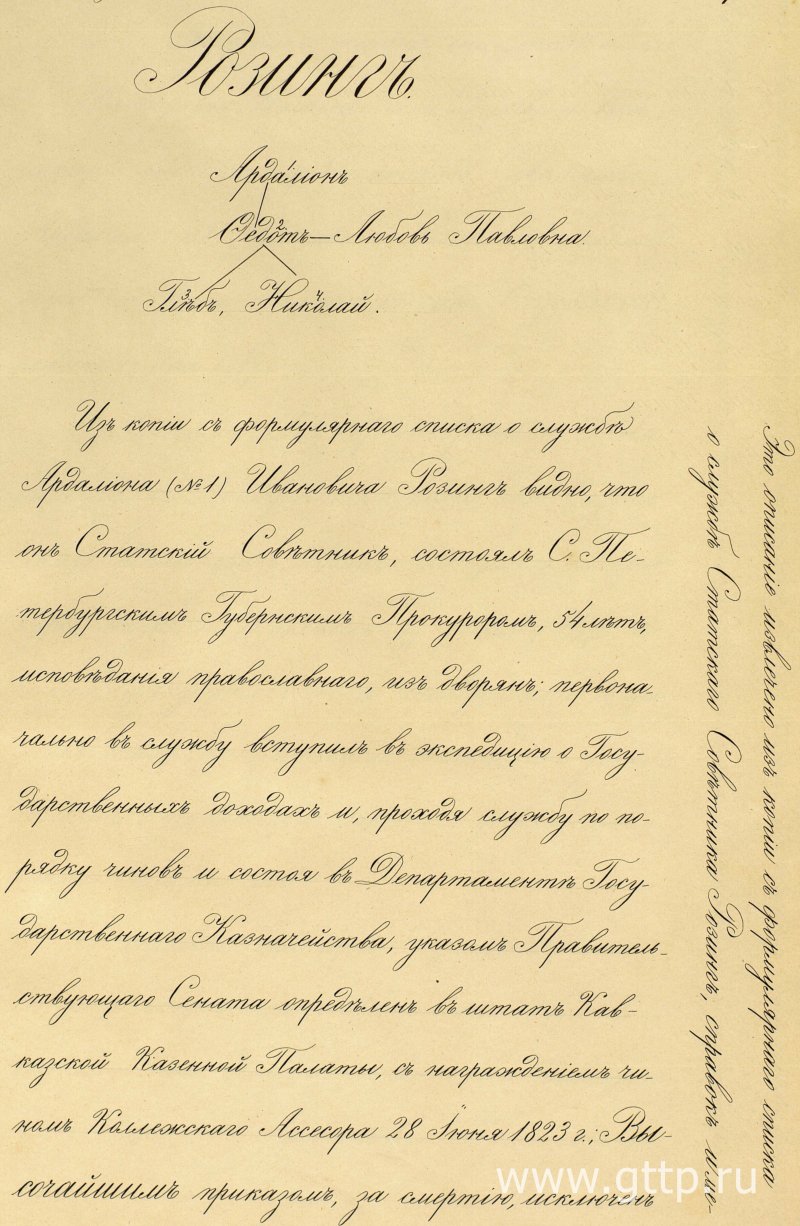 Розингъ.
Ардаліонъ
1
Ѳедотъ — Любовь Павловна.
2
Глѣбъ, Николай.
3 4
Изъ копіи съ формулярнаго списка о службѣ
Ардаліона (№1) Ивановича Розингъ видно, что
онъ Статскій Совѣтникъ, состоялъ С. Пе-
тербургскимъ Губернскимъ Прокуроромъ, 54 лѣтъ,
исповѣданія православнаго, изъ дворянъ; первона-
чально въ службу вступилъ въ экспедицію о Госу-
дарственныхъ доходахъ и, проходя службу по по-
рядку чиновъ и состоя въ Департаментѣ Госу-
дарственнаго Казначейства, указомъ Правитель-
ствующаго Сената опредѣленъ въ штатъ Кав-
казской Казенной Палаты, съ награжденіемъ чи-
номъ Коллежскаго Ассесора 28 Іюня 1823 г.; Вы-
сочайшимъ приказомъ, за смертію, исключенъ
Это описаніе извлечено изъ копіи съ формулярнаго списка
о службѣ Статскаго Совѣтника Розингъ, справокъ и мо-
www.gttp.ru